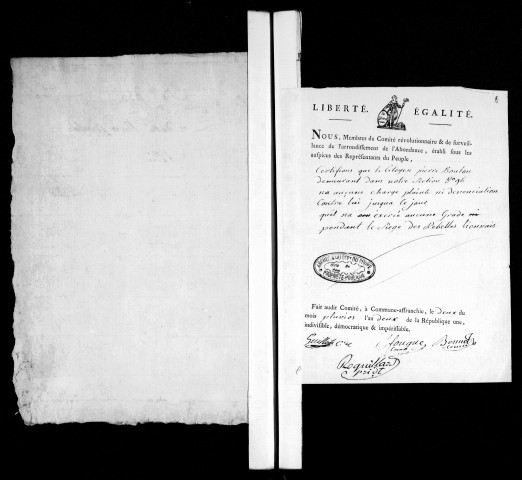 LIBERTÉ. ÉGALITÉ.
NOUS, Membres du Comité révolutionnaire & de surveil-
lance de l'arrondissement de l'Abondance, établi sous les
auspices des Représentans du Peuple,
Certifions que le Citoyen pierre Boulon
demeurant dans notre Section N° 96
na aucune charge plainte ni denonciation
Contre lui jusqua ce jour
quil na exercé aucune Grade
pendant le Siege des Rebelles lionnais
PROPRIÉTÉ PUBLIQUE
Fait audit Comité, à Commune-affranchie, le deux du
mois pluvios l'an deux de la République une,
indivisible, démocratique & impérissable.
Bonnet